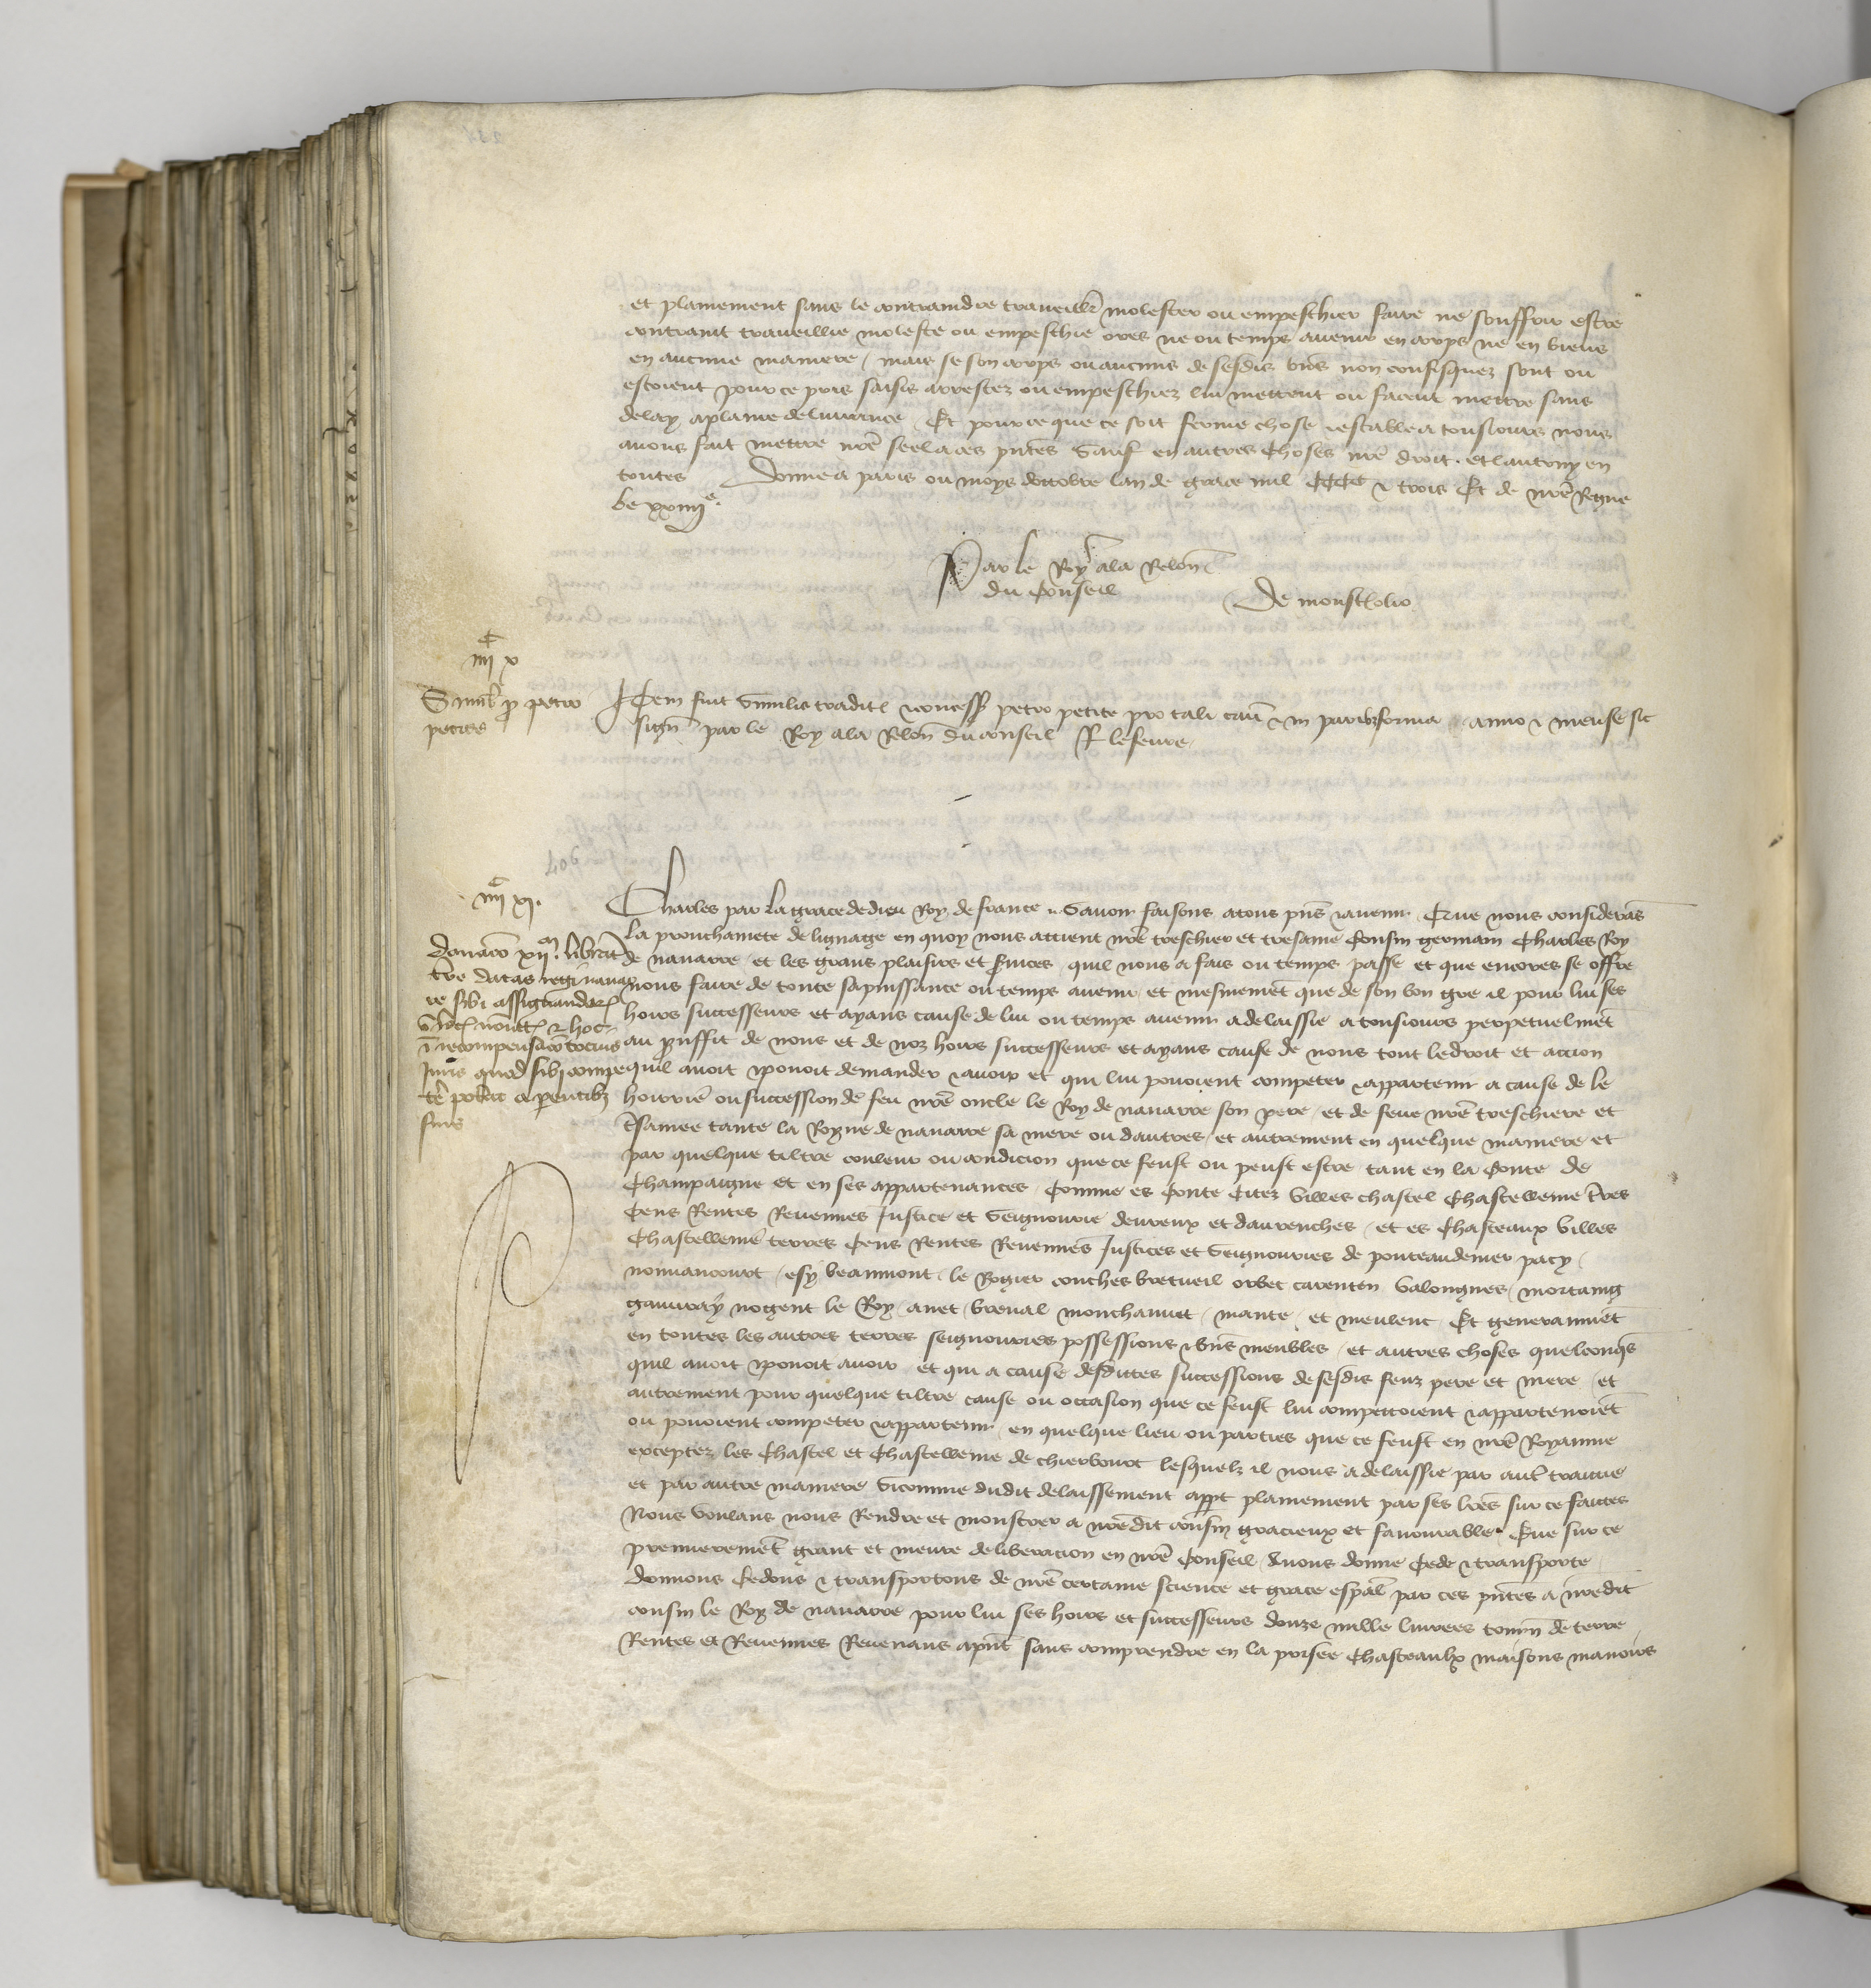 et plainement sans le contraindre traveillr molester ou empeschier faire ne souffrir estre
contraint traveillie moleste ou empeschie ores ne ou temps avenir en corps ne en biens
en aucune maniere / mais se son corps ou aucuns de sesdis biens non confisquez sont ou
estoient pour ce pris saisis arrestez ou empeschiez lui mettent ou facent mettre sans
delay a plaine delivrance Et pour ce que ce soit ferme chose & estable a tousiours nous
avons fait mettre nre seel a ces pntes Sauf en autres choses nre droit . et lautruy en
toutes Donne a paris ou moys doctobre lan de grace mil CCCC & trois Et de nre Regne
le xxiiiie.
Par le Roy a la Relon
du Conseil
De monsterolio
iiii C x
Simil p petro
petite
Item fuit similis tradit concess petro petite pro tali cau & in paribz forma anno & mense sic
sign par le Roy a la Relon du conseil P lefevre
iiii C xi.
Donaco xii m. librat
tre datas regi navar
re sibi assignandar
& hoc
in recompensaco tocius
iuris quod sibi compe
te potat a parentibz
suis
Charles par la grace de dieu Roy de france .. Savoir faisons a tous pns & avenir Que nous considerans
la prouchainete de lignage en quoy nous attient nre treschier et tresame Cousin germain Charles Roy
de navarre / et les grans plaisirs et svices quil nous a fais ou temps passe et que encores se offre
nous faire de toute sa puissance ou temps avenir et mesmement que de son bon gre il pour lui ses
hoirs successeurs et ayans cause de lui ou temps avenir a delaissie a tousiours perpetuelmet
au prouffit de nous et de noz hoirs successeurs et ayans cause de nous tout le droit et accion
quil avoit & povoit demander & avoir et qui lui povoient competer & appartenir a cause de le
hoirrie ou succession de feu nre oncle le Roy de navarre son pere / et de feue nre treschiere et
tsamee tante la Royne de navarre sa mere ou dautres / et autrement en quelque maniere et
par quelque tiltre couleur ou condicion que ce feust ou peust estre tant en la Conte de
Champaigne et en ses appartenances / Comme es Conte Citez villes chastel Chastellenie tres
Cens Rentes Revenues Justice et Seigneurie devreux et davrenches / et es Chasteaux villes
Chastellenie terres Cens Rentes Revenues Justices et Seigneuries de ponteaudemer pacy /
nonnancourt / esy beaumont le Rogier conches bretueil orbec carenten valongnes / mortaing
gauvray nogent le Roy / anet / breval monchauvet / mante / et meulent Et generaument
en toutes les autres terres seigneuries possessions & biens meubles / et autres choses quelconqs
quil avoit & povoit avoir et qui a cause desdittes successions de sesdis feuz pere et mere / et
autrement pour quelque tiltre cause ou occasion que ce feust lui compettoient & appartenoient
ou povoient competer & appartenir en quelque lieu ou parties que ce feust en nre Royaume
exceptez les Chastel et Chastellenie de chierbourt lesquelz il nous a delaissie par aut traittie
et par autre maniere Si comme dudit delaissement appt plainement par ses lres sur ce faites
Nous voulans nous Rendre et monstrer a nredit cousin gracieux et favourable Eue sur ce
premierement grant et meure deliberacion en nre Conseil / Avons donne Cede & transporte
donnons Cedons & transportons de nre certaine science et grace espal par ces pntes a nredit
cousin le Roy de navarre pour lui ses hoirs et successeurs douze mille livrees tourn de terre
Rentes et Revenues Revenans apnt sans comprendre en la prisee Chasteaulx maisons manoirs